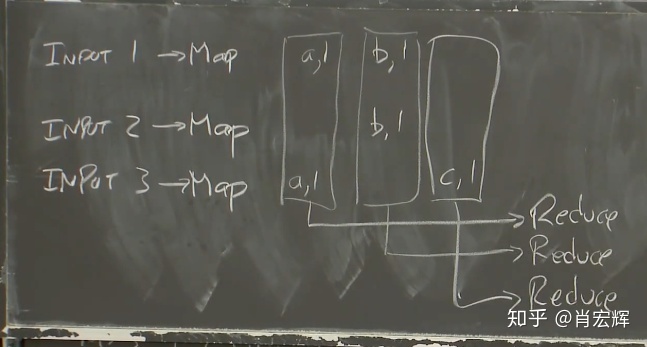 INPUT 1 → Map a,1 b,1
INPUT 2 → Map b,1
INPUT 3 → Map a,1 c,1
Reduce
Reduce
Reduce
知乎 @肖宏辉